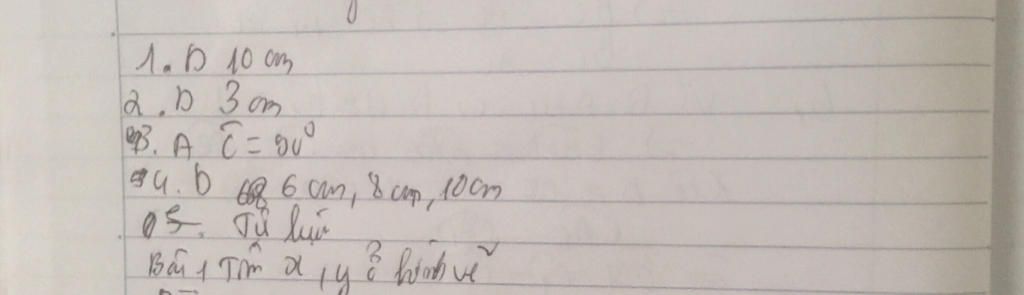 1. D 10 cm
2. D 3 cm
3. A Ĉ = 90°
4. D 6 cm, 8 cm, 10 cm
Tự luận
Bài 1 Tìm x, y ở hình vẽ